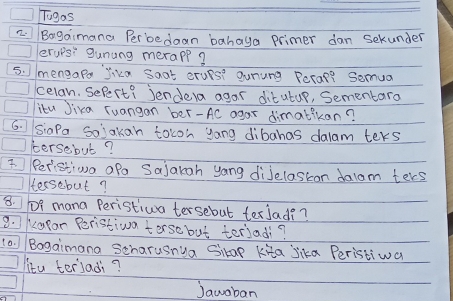 Tugas
2. Bagaimana Perbedaan bahaya Primer dan Sekunder
erupsi gunung merapi?
5. mengapa Jika saat erupsi gunung Perapi Semua
celah, Seperti Jendela agar ditutup, Sementara
itu Jika ruangan ber-AC agar dimatikan?
6. Siapa Sajakah tokoh yang dibahas dalam teks
tersebut?
7. Peristiwa apa Sajakah yang dijelaskan dalam teks
tersebut?
8. Di mana Peristiwa tersebut terjadi?
9. kapan Peristiwa tersebut terjadi?
10. Bagaimana Seharusnya Sikap kita Jika Peristiwa
itu terjadi?
Jawaban